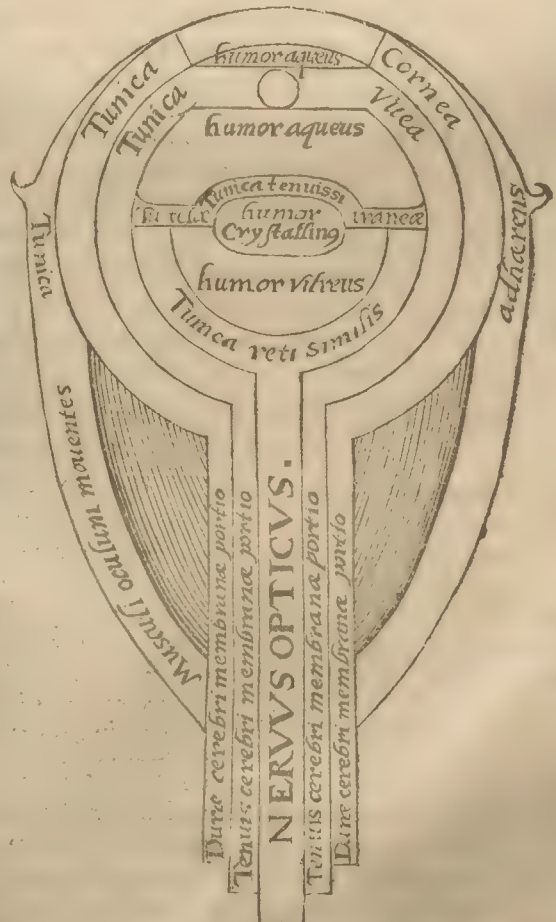 humor aqueus
Tunica Cornea
Tunica Vuea
humor aqueus
Tunica tenuissi
telæ araneæ
humor
Crystalling
Tunica adhærens
humor vitreus
Tunica reti similis
Musculi oculum mouentes
Duræ cerebri membranæ portio
Tenuis cerebri membranæ portio
NERVVS OPTICVS.
Tenuis cerebri membranæ portio
Duræ cerebri membranæ portio